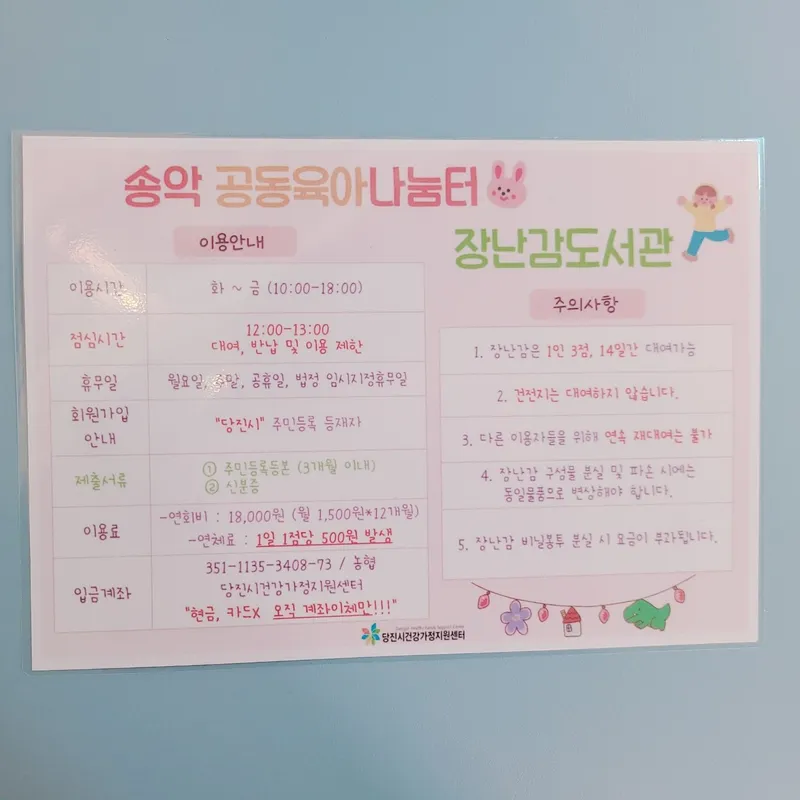 송악 공동육아나눔터
장난감도서관
이용안내
이용시간
화 ~ 금 (10:00-18:00)
점심시간
12:00-13:00
대여, 반납 및 이용 제한
휴무일
월요일, 주말, 공휴일, 법정 임시지정휴무일
회원가입
안내
"당진시" 주민등록 등재자
제출서류
① 주민등록등본 (3개월 이내)
② 신분증
이용료
-연회비 : 18,000원 (월 1,500원*12개월)
-연체료 : 1일 1점당 500원 발생
입금계좌
351-1135-3408-73 / 농협
당진시건강가정지원센터
"현금, 카드X 오직 계좌이체만!!!"
주의사항
1. 장난감은 1인 3점, 14일간 대여가능
2. 건전지는 대여하지 않습니다.
3. 다른 이용자들을 위해 연속 재대여는 불가
4. 장난감 구성물 분실 및 파손 시에는
동일물품으로 변상해야 합니다.
5. 장난감 비닐봉투 분실 시 요금이 부과됩니다.
당진시건강가정지원센터